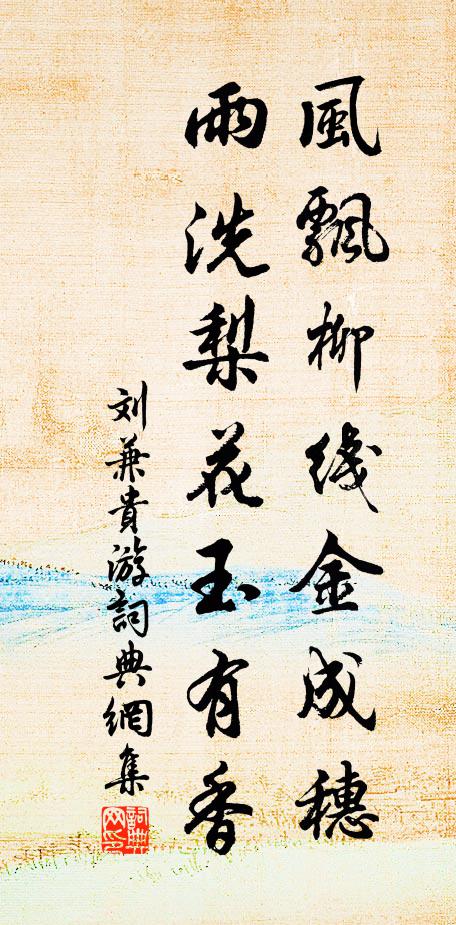 風飄柳线金成穗
雨洗梨花玉有香
刘兼貴游詞典網集
詞典
网印